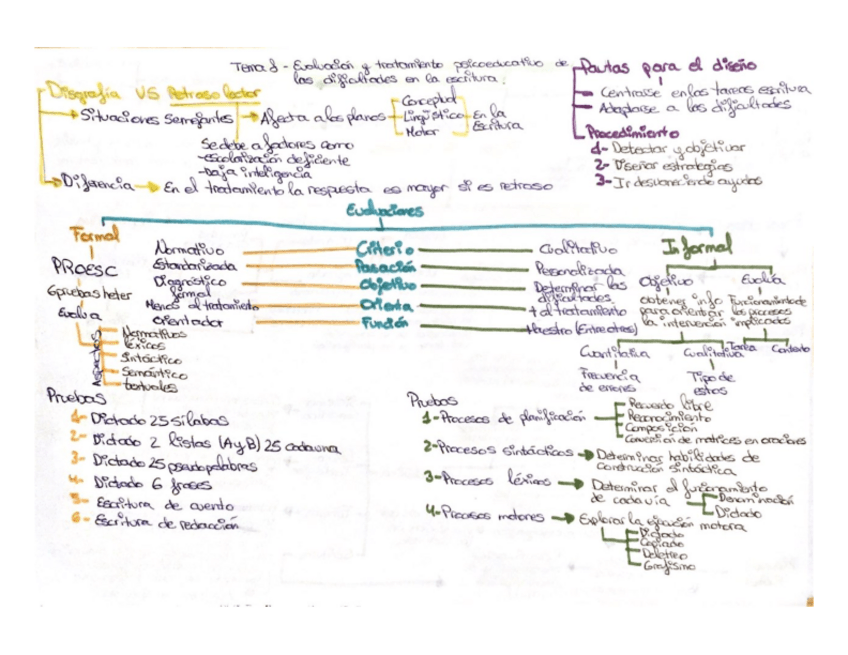 Tema 8 - Evaluación y tratamiento psicoeducativo de
las dificultades en la escritura.
Disgrafía VS Retraso lector
Situaciones semejantes
Afecta a los planos
Conceptual
Lingüístico
Motor
En la
escritura
Se debe a factores como
-escolarización deficiente
-baja inteligencia
Diferencia
En el tratamiento la respuesta es mayor si es retraso
Pautas para el diseño
Centrarse en las tareas escritura
Adaptarse a las dificultades
Procedimiento
1- Detectar y objetivar
2- Diseñar estrategias
3- Ir desvaneciendo ayudas
Evaluaciones
Formal
Informal
Normativo
Criterio
Cualitativo
Estandarizada
Pasación
Personalizada
Diagnóstico
formal
Objetivo
Determinar las
dificultades
Menos al tratamiento
Orienta
+ al tratamiento
Orientador
Función
Maestro (Entre otros)
PROESC
6 pruebas heter
Evalua
Aspectos
Normativos
léxicos
Sintáctico
Semántico
textuales
Objetivo
obtener info
para orientar
la intervención
Evalúa
Funcionamiento de
los procesos
implicados
Tarea
Contexto
Cuantitativa
Cualitativa
Frecuencia
de errores
Tipo de
estos
Pruebas
1- Dictado 25 sílabas
2- Dictado 2 listas (A y B) 25 cada una
3- Dictado 25 pseudopalabras
4- Dictado 6 frases
5- Escritura de cuento
6- Escritura de redacción
Pruebas
1-Procesos de planificación
Recuerdo libre
Reconocimiento
Composición
Conversión de matrices en oraciones
2-Procesos sintácticos
Determinar habilidades de
construcción sintáctica
3-Procesos léxicos
Determinar el funcionamiento
de cada vía
Denominación
Dictado
4-Procesos motores
Explorar la ejecución motora
Dictado
Copiado
Deletreo
Grafismo